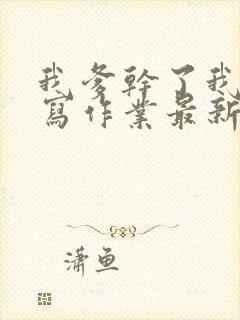 我爹幹了我
寫作業最新
潇鱼